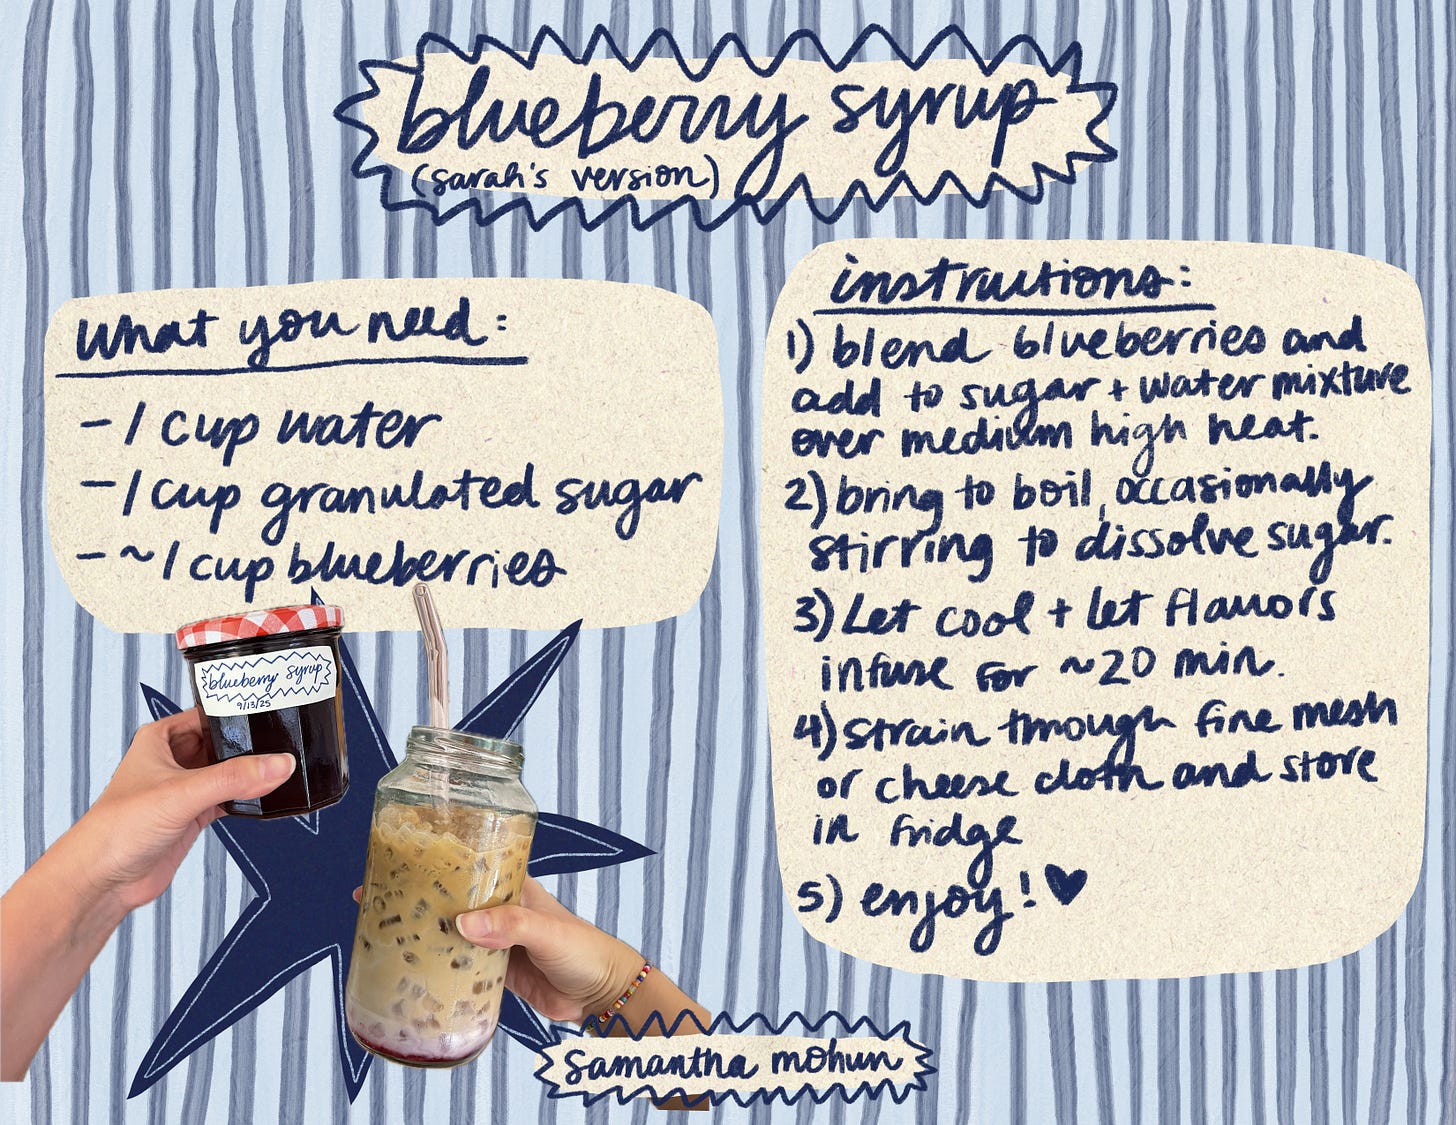 blueberry syrup
(sarah's version)
what you need:
- 1 cup water
- 1 cup granulated sugar
- ~1 cup blueberries
blueberry syrup
9/13/25
instructions:
1) blend blueberries and
add to sugar + water mixture
over medium high heat.
2) bring to boil, occasionally
stirring to dissolve sugar.
3) Let cool + let flavors
infuse for ~20 min.
4) strain through fine mesh
or cheese cloth and store
in fridge
5) enjoy! ♥
samantha mohun